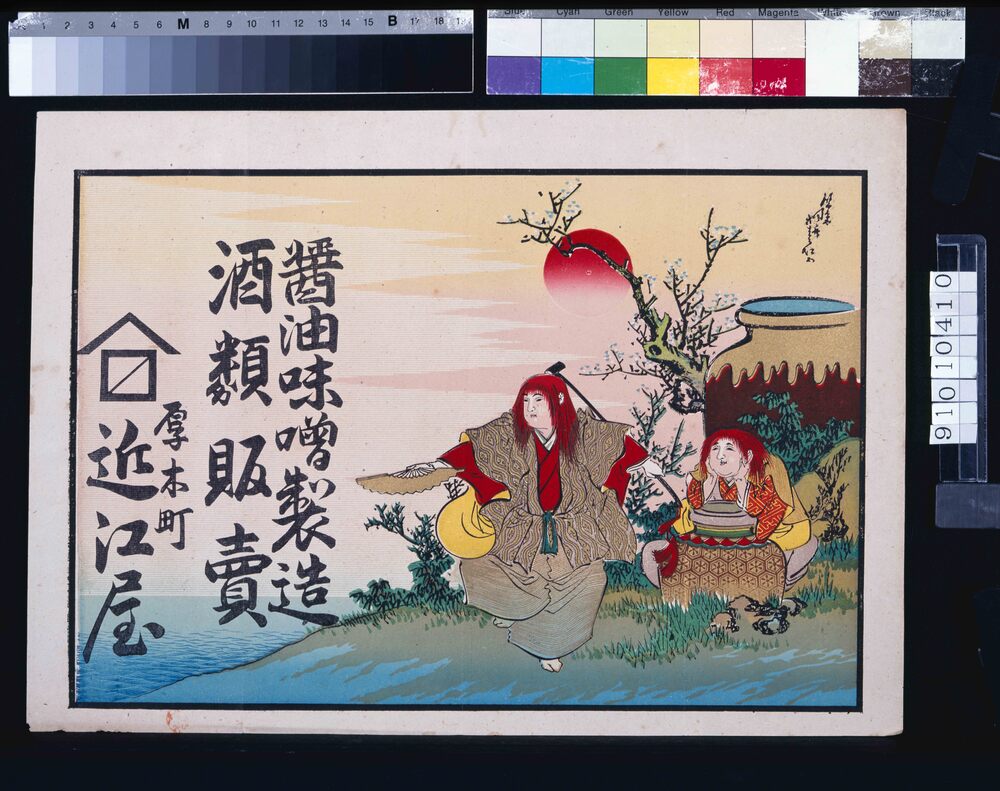 1 2 3 4 5 6 M 8 9 10 11 12 13 14 15 B 17 18
Cyan Green Yellow Red Magenta
醤油味噌製造
酒類販賣
厚木町
近江屋
91010410